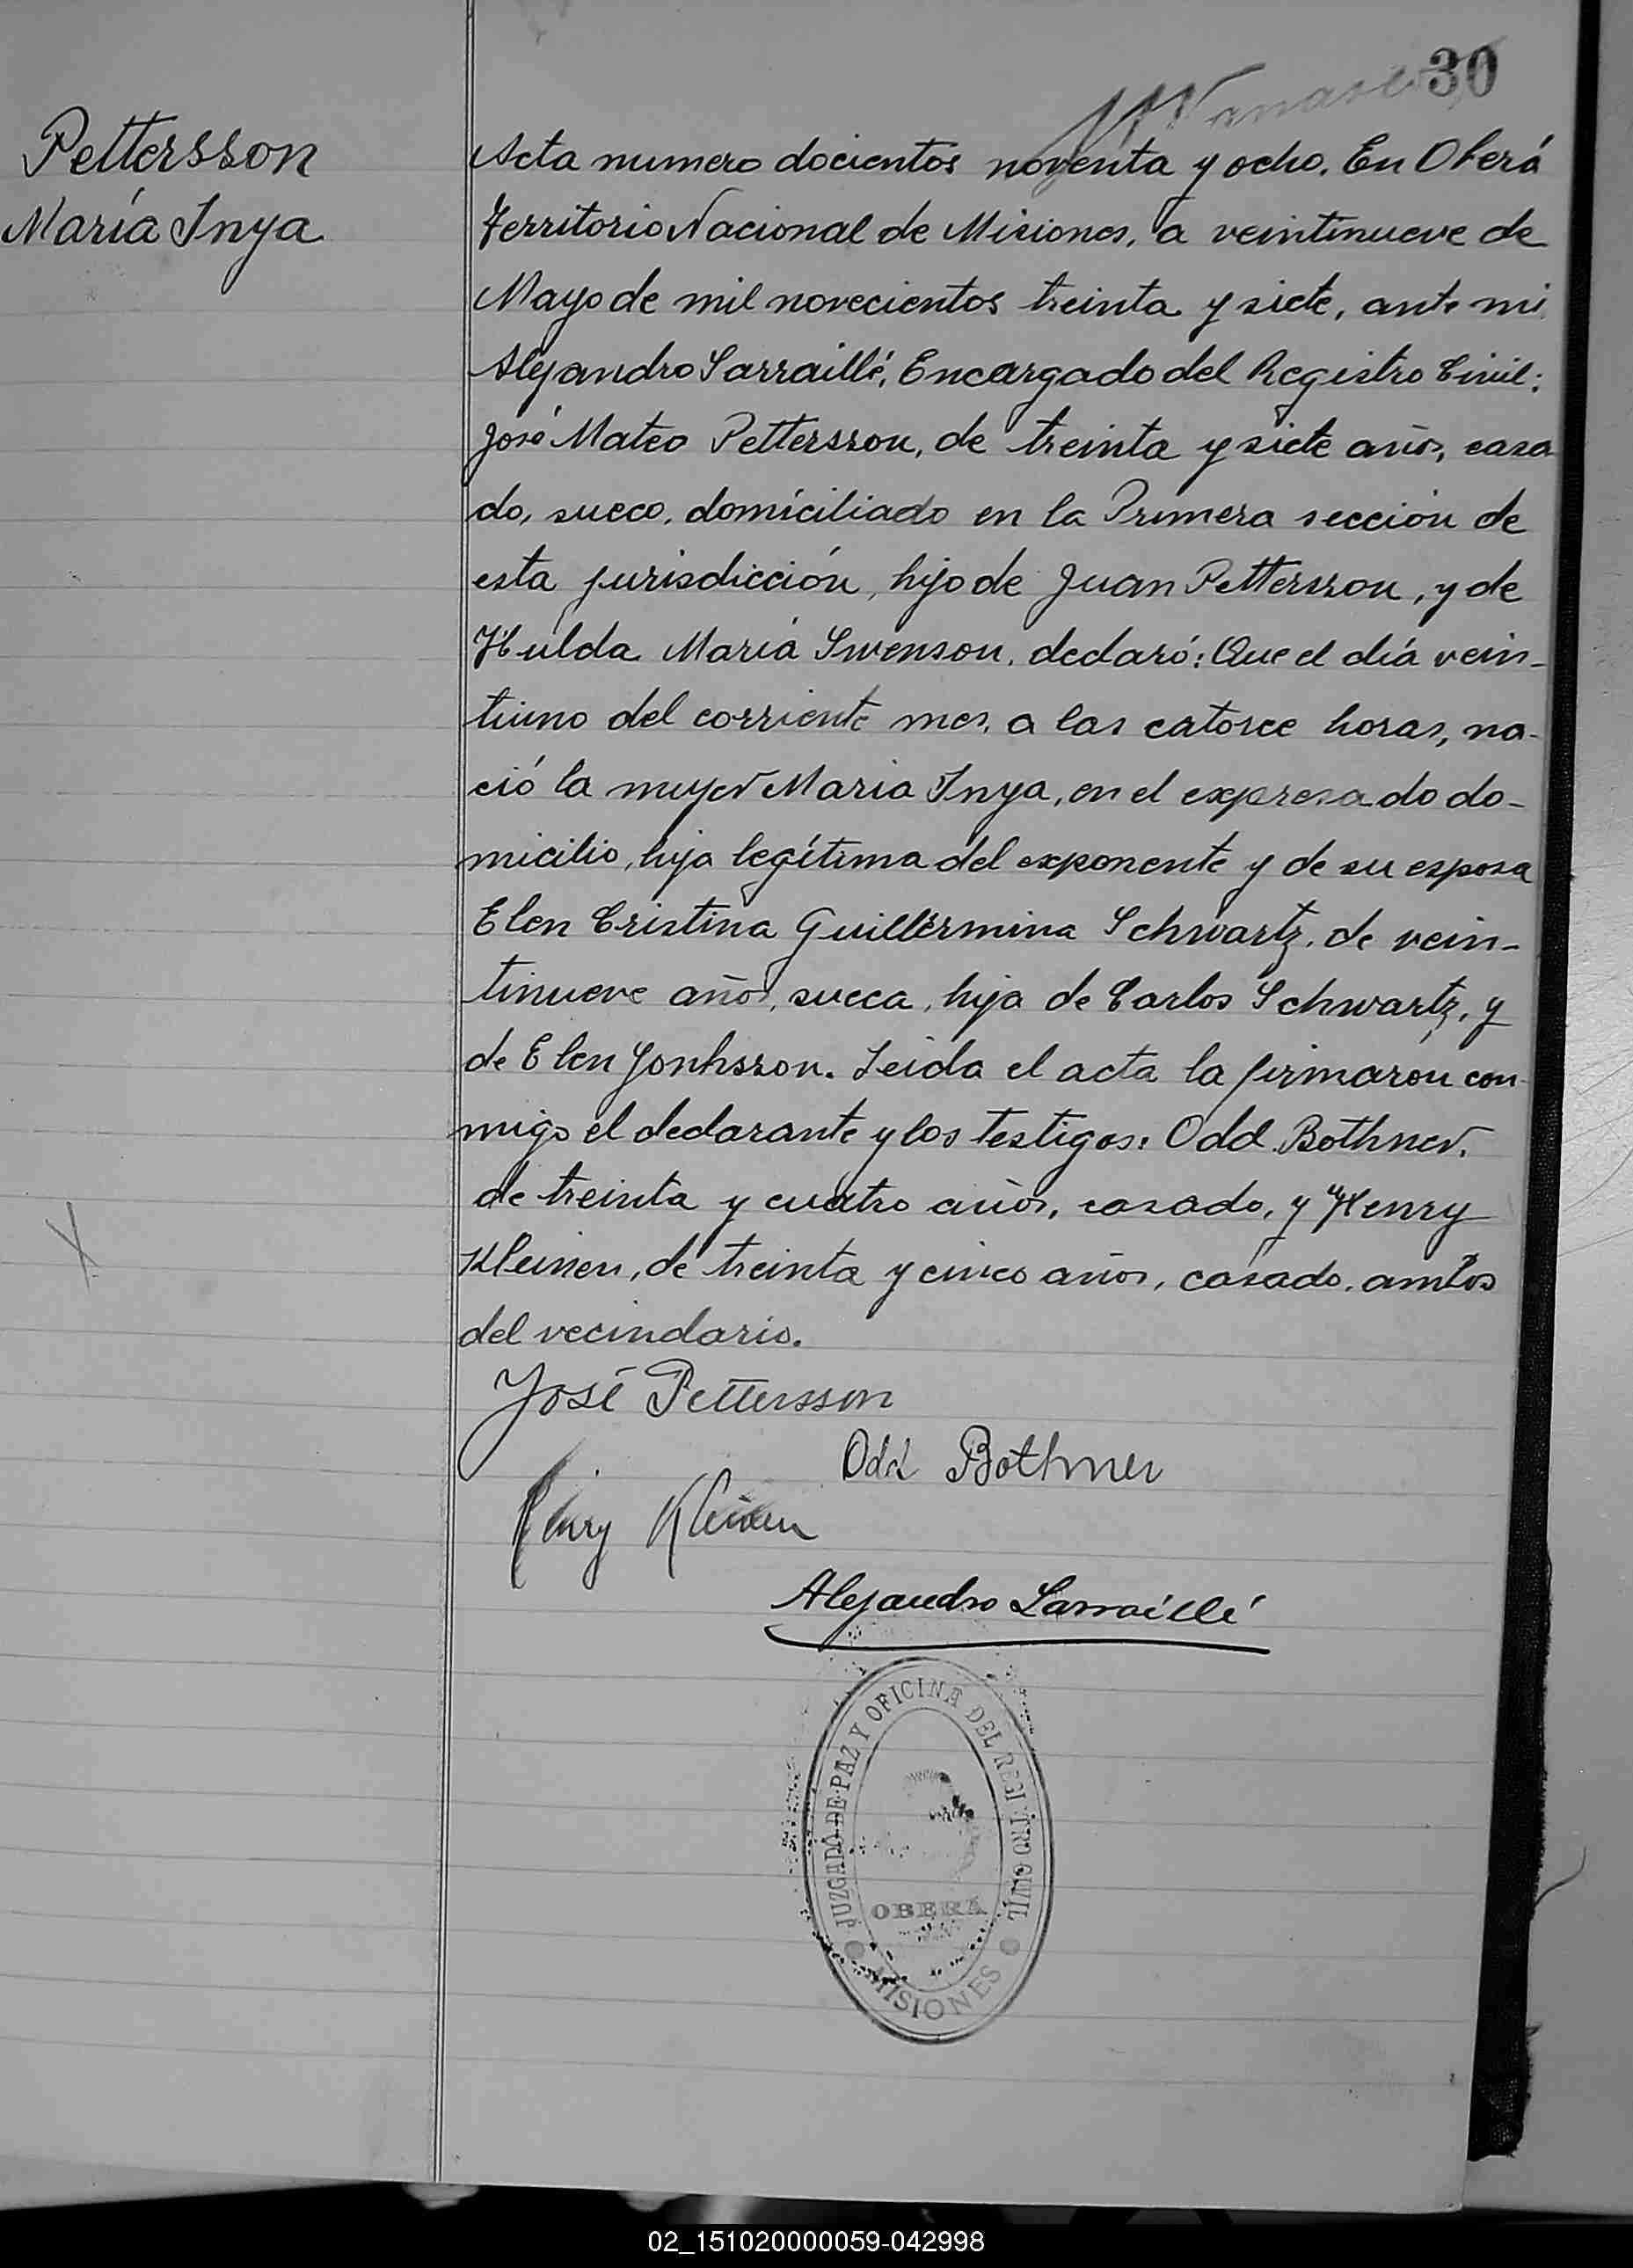 30
Pettersson
María Inya
Acta numero docientos noventa y ocho. En Oberá
Territorio Nacional de Misiones, a veintinueve de
Mayo de mil novecientos treinta y siete, ante mi
Alejandro Larraillé, Encargado del Registro Civil:
José Mateo Pettersson, de treinta y siete años, casa
do, sueco, domiciliado en la Primera sección de
esta jurisdicción, hijo de Juan Pettersson, y de
Hulda María Swenson, declaró: Que el día vein-
tiuno del corriente mes, a las catorce horas, na-
ció la mujer Maria Inya, en el expresado do-
micilio, hija legítima del exponente y de su esposa
Elen Cristina Guillermina Schwartz, de vein-
tinueve años, sueca, hija de Carlos Schwartz, y
de Elen Jonhsson. Leida el acta la firmaron con
migo el declarante y los testigos: Odd Bothner,
de treinta y cuatro años, casado, y Henry
Kleinen, de treinta y cinco años, casado, ambos
del vecindario.
José Pettersson
Odd Bothner
Henry Kleinen
Alejandro Larraillé
JUZGADO DE PAZ Y OFICINA DEL REGI TRO CIVIL
OBERA
MISIONES
02_151020000059-042998